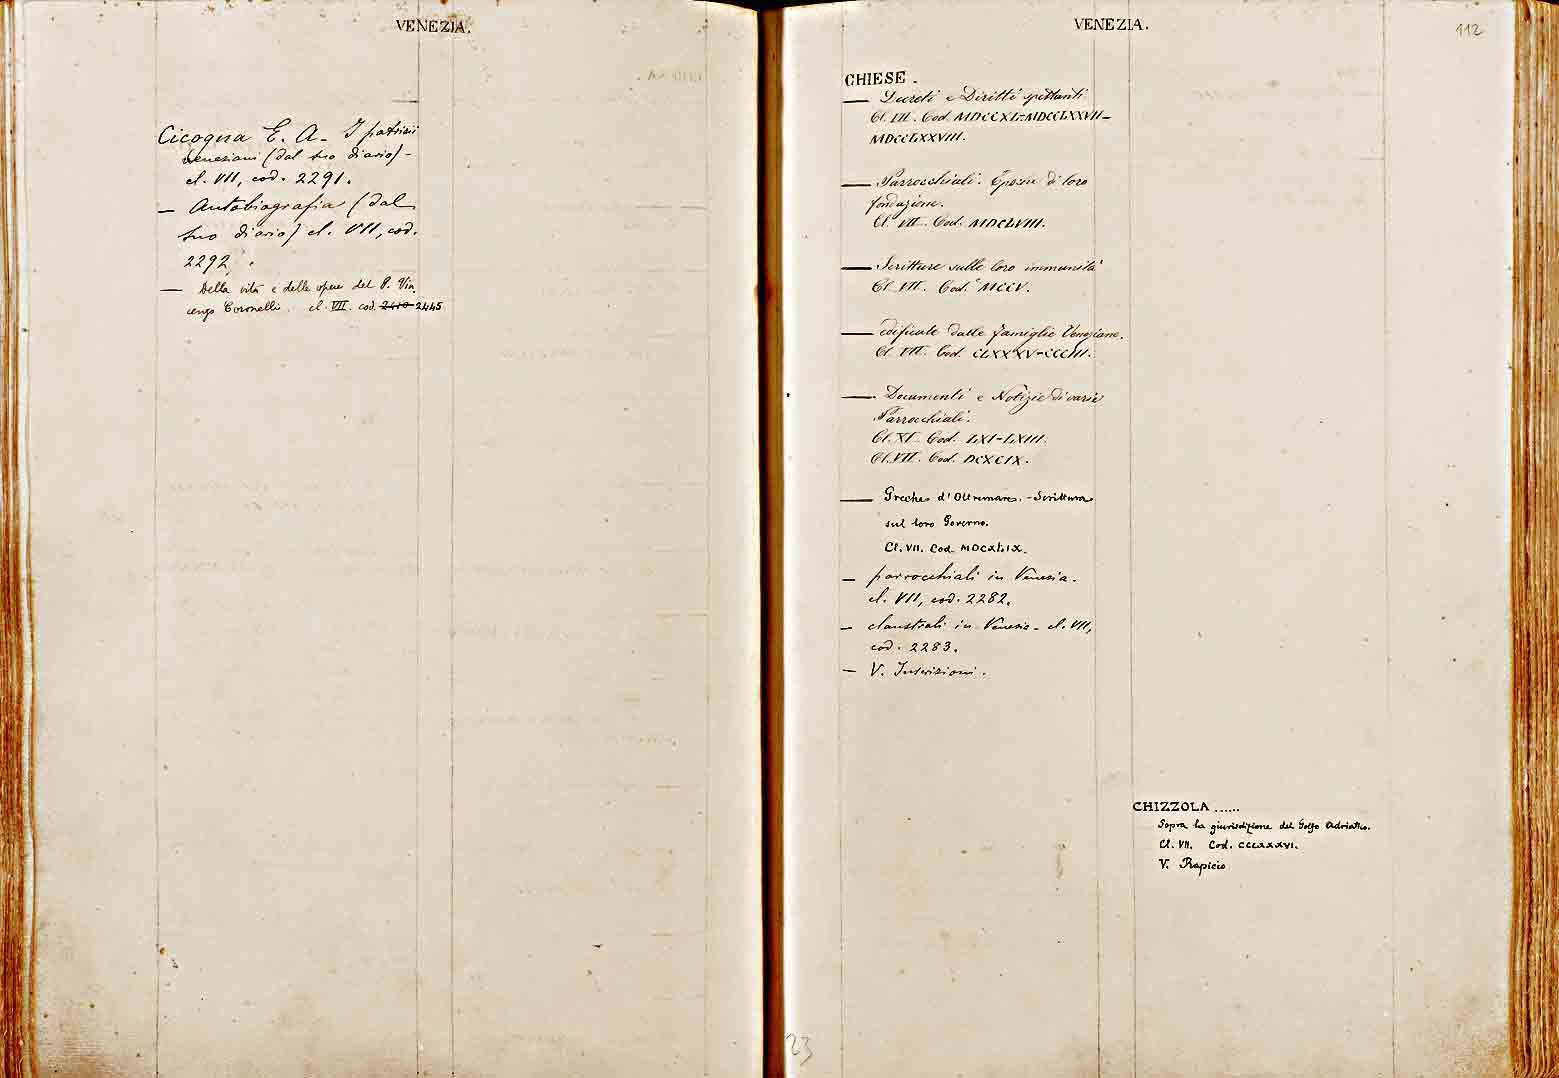 VENEZIA.
Cicogna E. A. - I patrizii
veneziani (dal suo diario) -
cl. VII, cod. 2291.
— Autobiografia (dal
suo diario) cl. VII, cod.
2292.
— Della vita e delle opere del P. Vin
cenzo Coronelli. cl. VII. cod. 2445
VENEZIA.
112
CHIESE.
— Decreti e Diritti spettanti
Cl. VII. Cod. MDCCXL-MDCCLXXVII-
MDCCLXXVIII.
— Parrocchiali. Epoche di loro
fondazione.
Cl. VII. Cod. MDCLVIII.
— Scritture sulle loro immunità
Cl. VII. Cod. MCCV.
— edificate dalle famiglie Veneziane.
Cl. VII. Cod. CLXXXV-CCCIII.
— Documenti e Notizie di varie
Parrocchiali.
Cl. XI. Cod. LXI-LXIII.
Cl. VII. Cod. DCXCIX.
— Greche d'Oltremare. - Scrittura
sul loro Governo.
Cl. VII. Cod. MDCXLIX.
— parrocchiali in Venezia.
cl. VII, cod. 2282.
— claustrali in Venezia - cl. VII,
cod. 2283.
— V. Inscrizioni.
CHIZZOLA ......
Sopra la giurisdizione del Golfo Adriatico.
Cl. VII. Cod. CCCXXXVI.
V. Rapicio
23